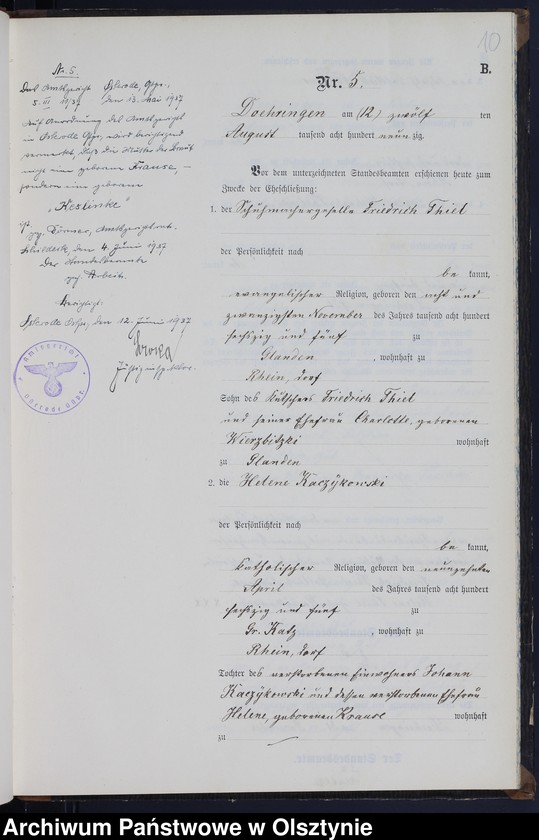 10
B.
Nr. 5.
Nr. 5.
Das Amtsgericht Osterode, Ostpr.
5. III 11/37 den 13. Mai 1937
Auf Anordnung des Amtsgerichts
in Osterode Ostpr. wird berichtigend
vermerkt, daß die Mutter der Braut
nicht eine geborene Krause, –
sondern eine geborene
"Keslinke"
ist.
gez. Dörner, Amtsgerichtsrat.
den 4. Juni 1937
Der Standesbeamte
gez. Arbeit.
Beglaubigt:
Osterode Ostpr., den 12. Juni 1937
Justizinspektor.
Amtsgericht
Osterode Ostpr.
Doehringen am (12) zwölf ten
August tausend acht hundert neunzig.
Vor dem unterzeichneten Standesbeamten erschienen heute zum
Zwecke der Eheschließung:
1. der Schuhmachergeselle Friedrich Thiel
der Persönlichkeit nach
be kannt,
evangelischer Religion, geboren den acht und
zwanzigsten November des Jahres tausend acht hundert
sechszig und fünf zu
Glanden , wohnhaft zu
Rhein, Dorf
Sohn des Kutschers Friedrich Thiel
und seiner Ehefrau Charlotte, geborenen
Wierzbitzki wohnhaft
zu Glanden
2. die Helene Kaczykowski
der Persönlichkeit nach
be kannt,
katholischer Religion, geboren den neunzehnten
April des Jahres tausend acht hundert
sechszig und fünf zu
Gr. Katz , wohnhaft zu
Rhein, Dorf
Tochter des verstorbenen Einwohners Johann
Kaczykowski und dessen verstorbenen Ehefrau
Helene, geborenen Krause wohnhaft
zu —
Archiwum Państwowe w Olsztynie